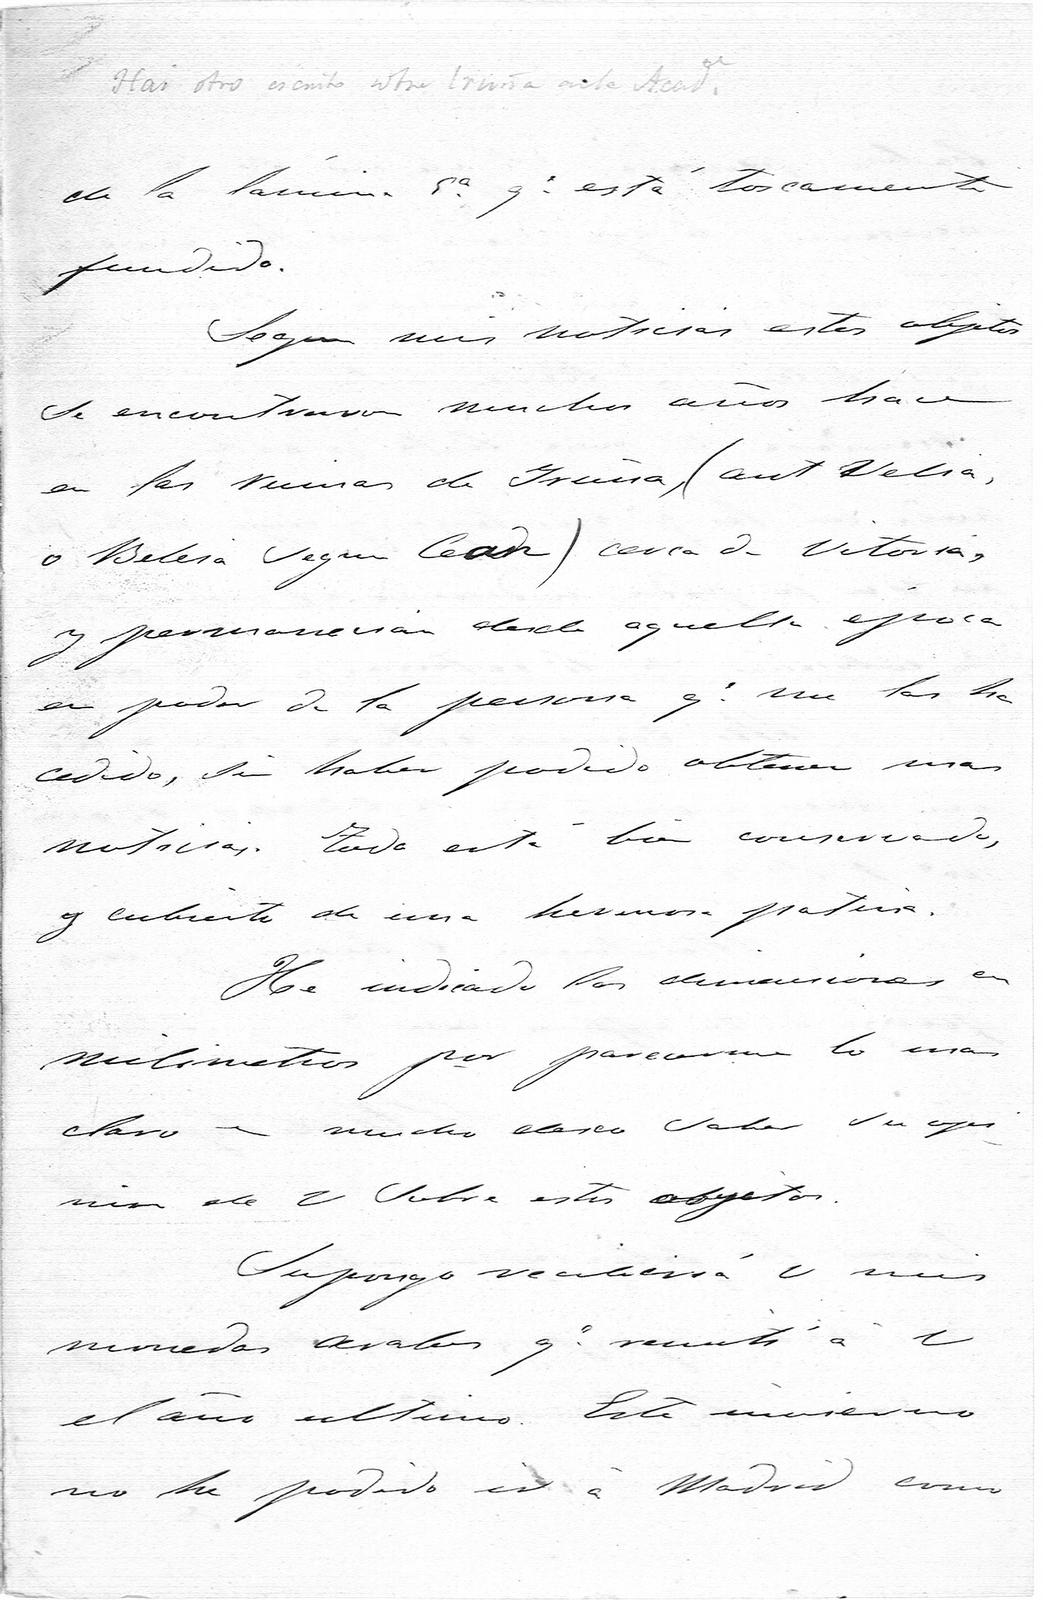 Hai otro escrito sobre Iruña en la Acad.ª
de la lámina 5ª q.e está toscamente
fundido.
Segun mis noticias estos objetos
se encontraron muchos años hace
en las ruinas de Iruña, (ant Velia,
o Beleia segun Cean) cerca de Vitoria,
y permanecian desde aquella época
en poder de la persona q.e me las ha
cedido, sin haber podido obtener mas
noticias. Todo está bien conservado,
y cubierto de una hermosa patina.
He indicado las dimensiones en
milimetros por parecerme lo mas
claro y mucho deseo saber su opi-
nion de V sobre estos objetos.
Supongo recibiria V mis
monedas arabes q.e remití á V
el año ultimo. Este invierno
no he podido ir á Madrid como